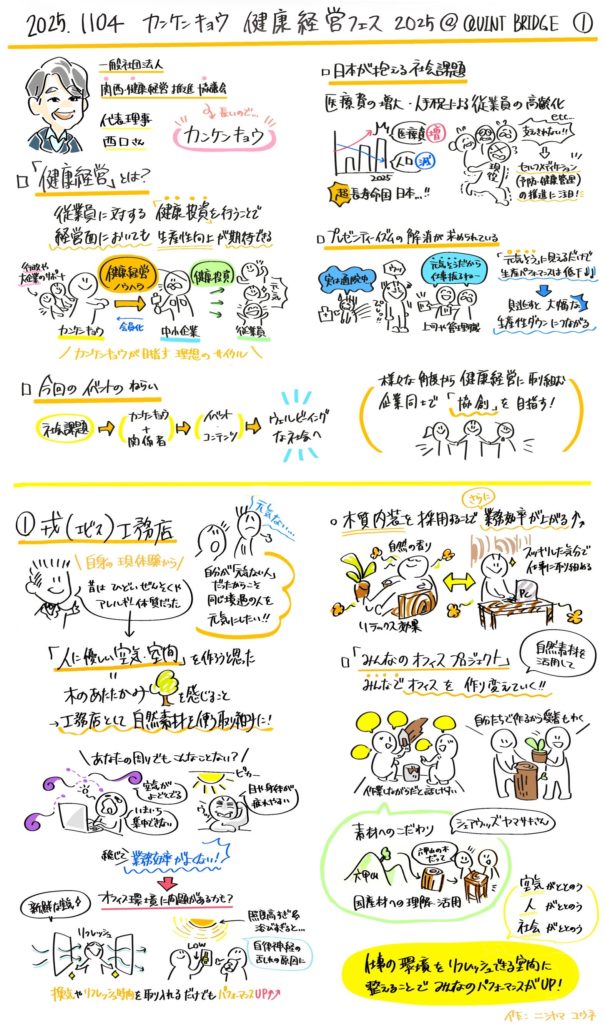 2025.1104 カンケンキョウ 健康経営フェス 2025@QUINT BRIDGE ①
一般社団法人
関西健康経営推進協議会
代表理事
西口さん
長いので…
カンケンキョウ
□「健康経営」とは?
従業員に対する「健康投資を行うことで
経営面においても 生産性向上が期待できる
行政や
大企業のサポート
健康経営
ノウハウ
健康投資
元気
カンケンキョウ
会員化
中小企業
従業員
カンケンキョウが目指す 理想のサイクル
□日本が抱える社会課題
医療費の増大・人手不足による従業員の高齢化
etc…
医療費 増
人口 減
2025
超 長寿命国 日本…!!
支えきれない!!
現役
セルフメディケーション
(予防・健康管理)
の推進に注目!
□プレゼンティーズムの解消が求められている
実は通院中
元気そうだから
仕事振るね〜
上司や管理職
「元気そうに見えるだけで
生産パフォーマンスは低下↓」
見逃すと大幅な
生産性ダウンにつながる
□今回のイベントのねらい
社会課題
カンケンキョウ
+
関係者
イベント
・
コンテンツ
ウェルビーイング
な社会へ
様々な角度から健康経営に取り組む
企業同士で「協創」を目指す!
①戎(エビス)工務店
自身の現体験から
昔はひどいぜんそくや
アレルギー体質だった
元気ない…
自分が「元気ない人」
だったからこそ
同じ境遇の人を
元気にしたい!!
「人に優しい空気、空間」を作ろうと思った
木のあたたかみ を感じること
→工務店として 自然素材を使う取り組みに!
あなたの周りでもこんなことない?
空気が
よどんでる
いまいち
集中できない
ピカー
目や身体が
疲れやすい
総じて 業務効率がよくない!
オフィス環境に問題があるかも?
新鮮な空気♪
リフレッシュ
LOW
照度高すぎを
浴びすぎると…
自律神経の
乱れの原因に
換気やリフレッシュ時間を取り入れるだけでもパフォーマンスUP↑↑
さらに
○木質内装を採用することで 業務効率が上がる↑
自然の香り
リラックス効果
スッキリした気分で
仕事に取り組める
PC
□「みんなのオフィスプロジェクト」
自然素材を
活用して
みんなでオフィスを作り変えていく!!
作業しながらだと話しやすい
自分たちで作るから愛着もわく
素材へのこだわり
シェアウッズ ヤマサキさん
六甲山
六甲山の木
だって
国産材への理解・活用
空気がととのう
人がととのう
社会がととのう
仕事の環境をリフレッシュできる空間に
整えることで みんなのパフォーマンスがUP!
作:ニシヤマ ユウキ